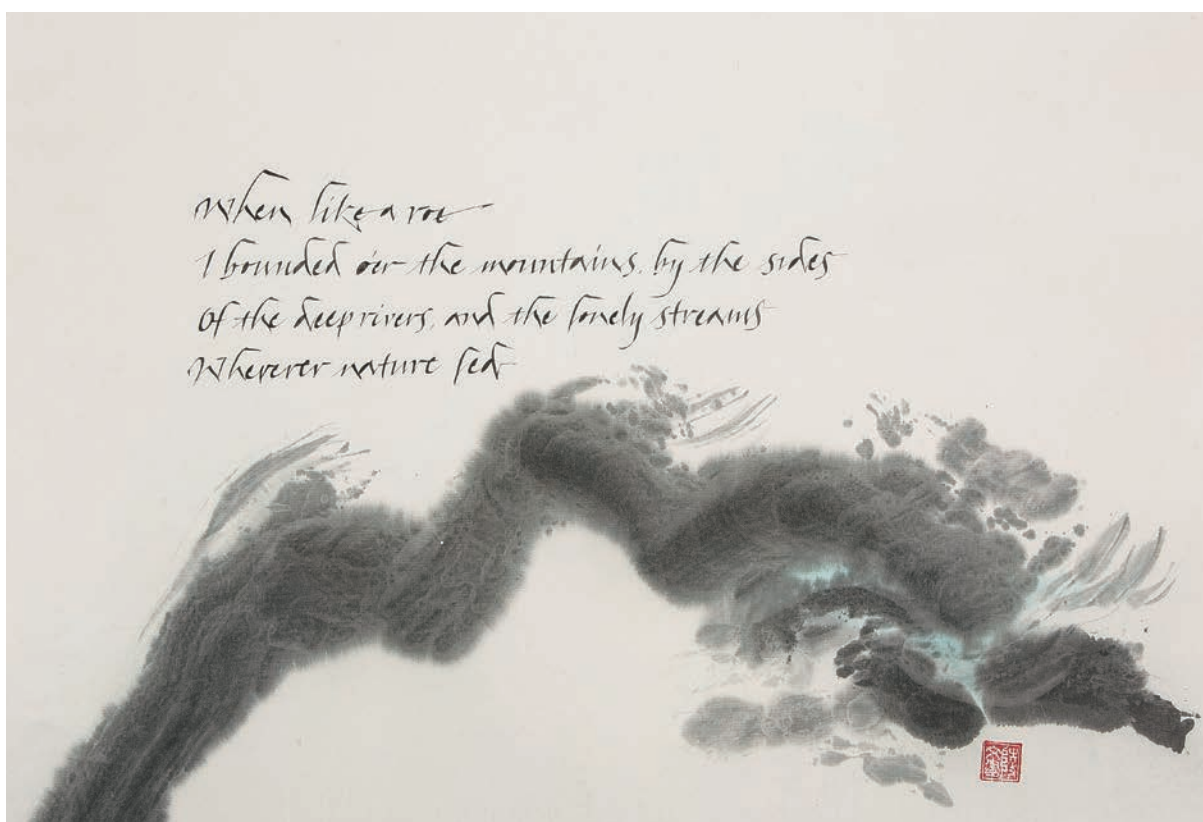 When like a roe
I bounded o'er the mountains, by the sides
Of the deep rivers, and the lonely streams
Wherever nature led